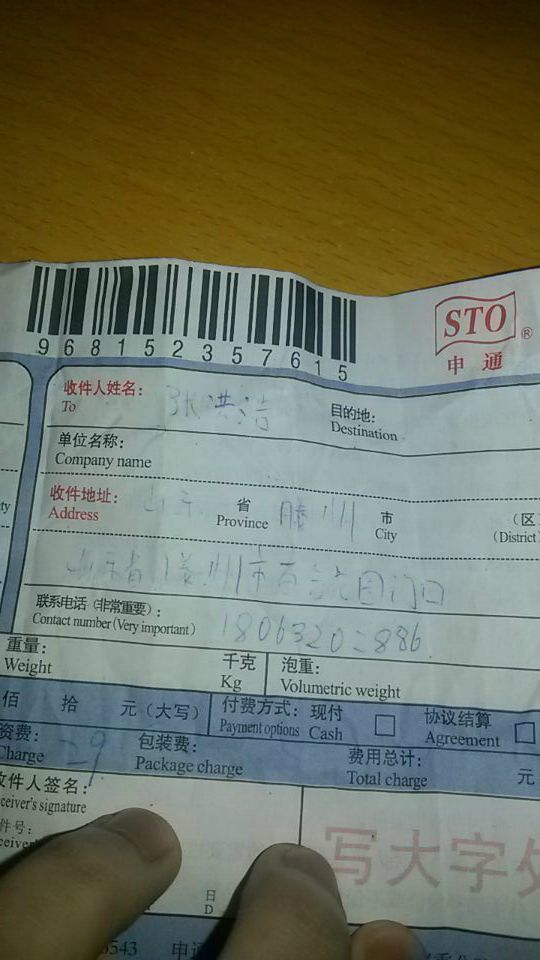 968152357615
STO ®
申通
收件人姓名: 张洪浩 目的地:
To Destination
单位名称:
Company name
收件地址: 山东 省 滕州 市 (区
Address Province City (District
山东省滕州市 门口
联系电话(非常重要): 18063202886
Contact number(Very important)
重量: 千克 泡重:
Weight Kg Volumetric weight
佰 拾 元(大写) 付费方式: 现付 协议结算
Payment options Cash Agreement
资费: 包装费: 费用总计:
Charge Package charge Total charge 元
收件人签名:
ceiver's signature
件号:
日
D
写大字
543 申